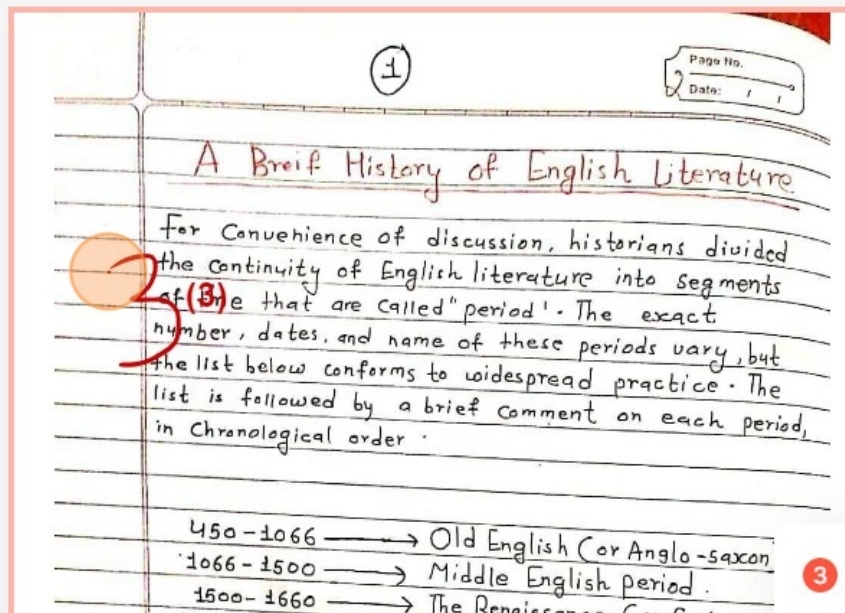 1
Page No.
Date: / /
A Breif History of English Literature
For Convenience of discussion, historians divided
the continuity of English literature into segments
of time that are called "period'. The exact
(3)
3
number, dates, and name of these periods vary, but
the list below conforms to widespread practice. The
list is followed by a brief comment on each period,
in Chronological order.
450-1066 → Old English (or Anglo-saxon
1066-1500 → Middle English period.
3
1500-1660 → The Renaissance